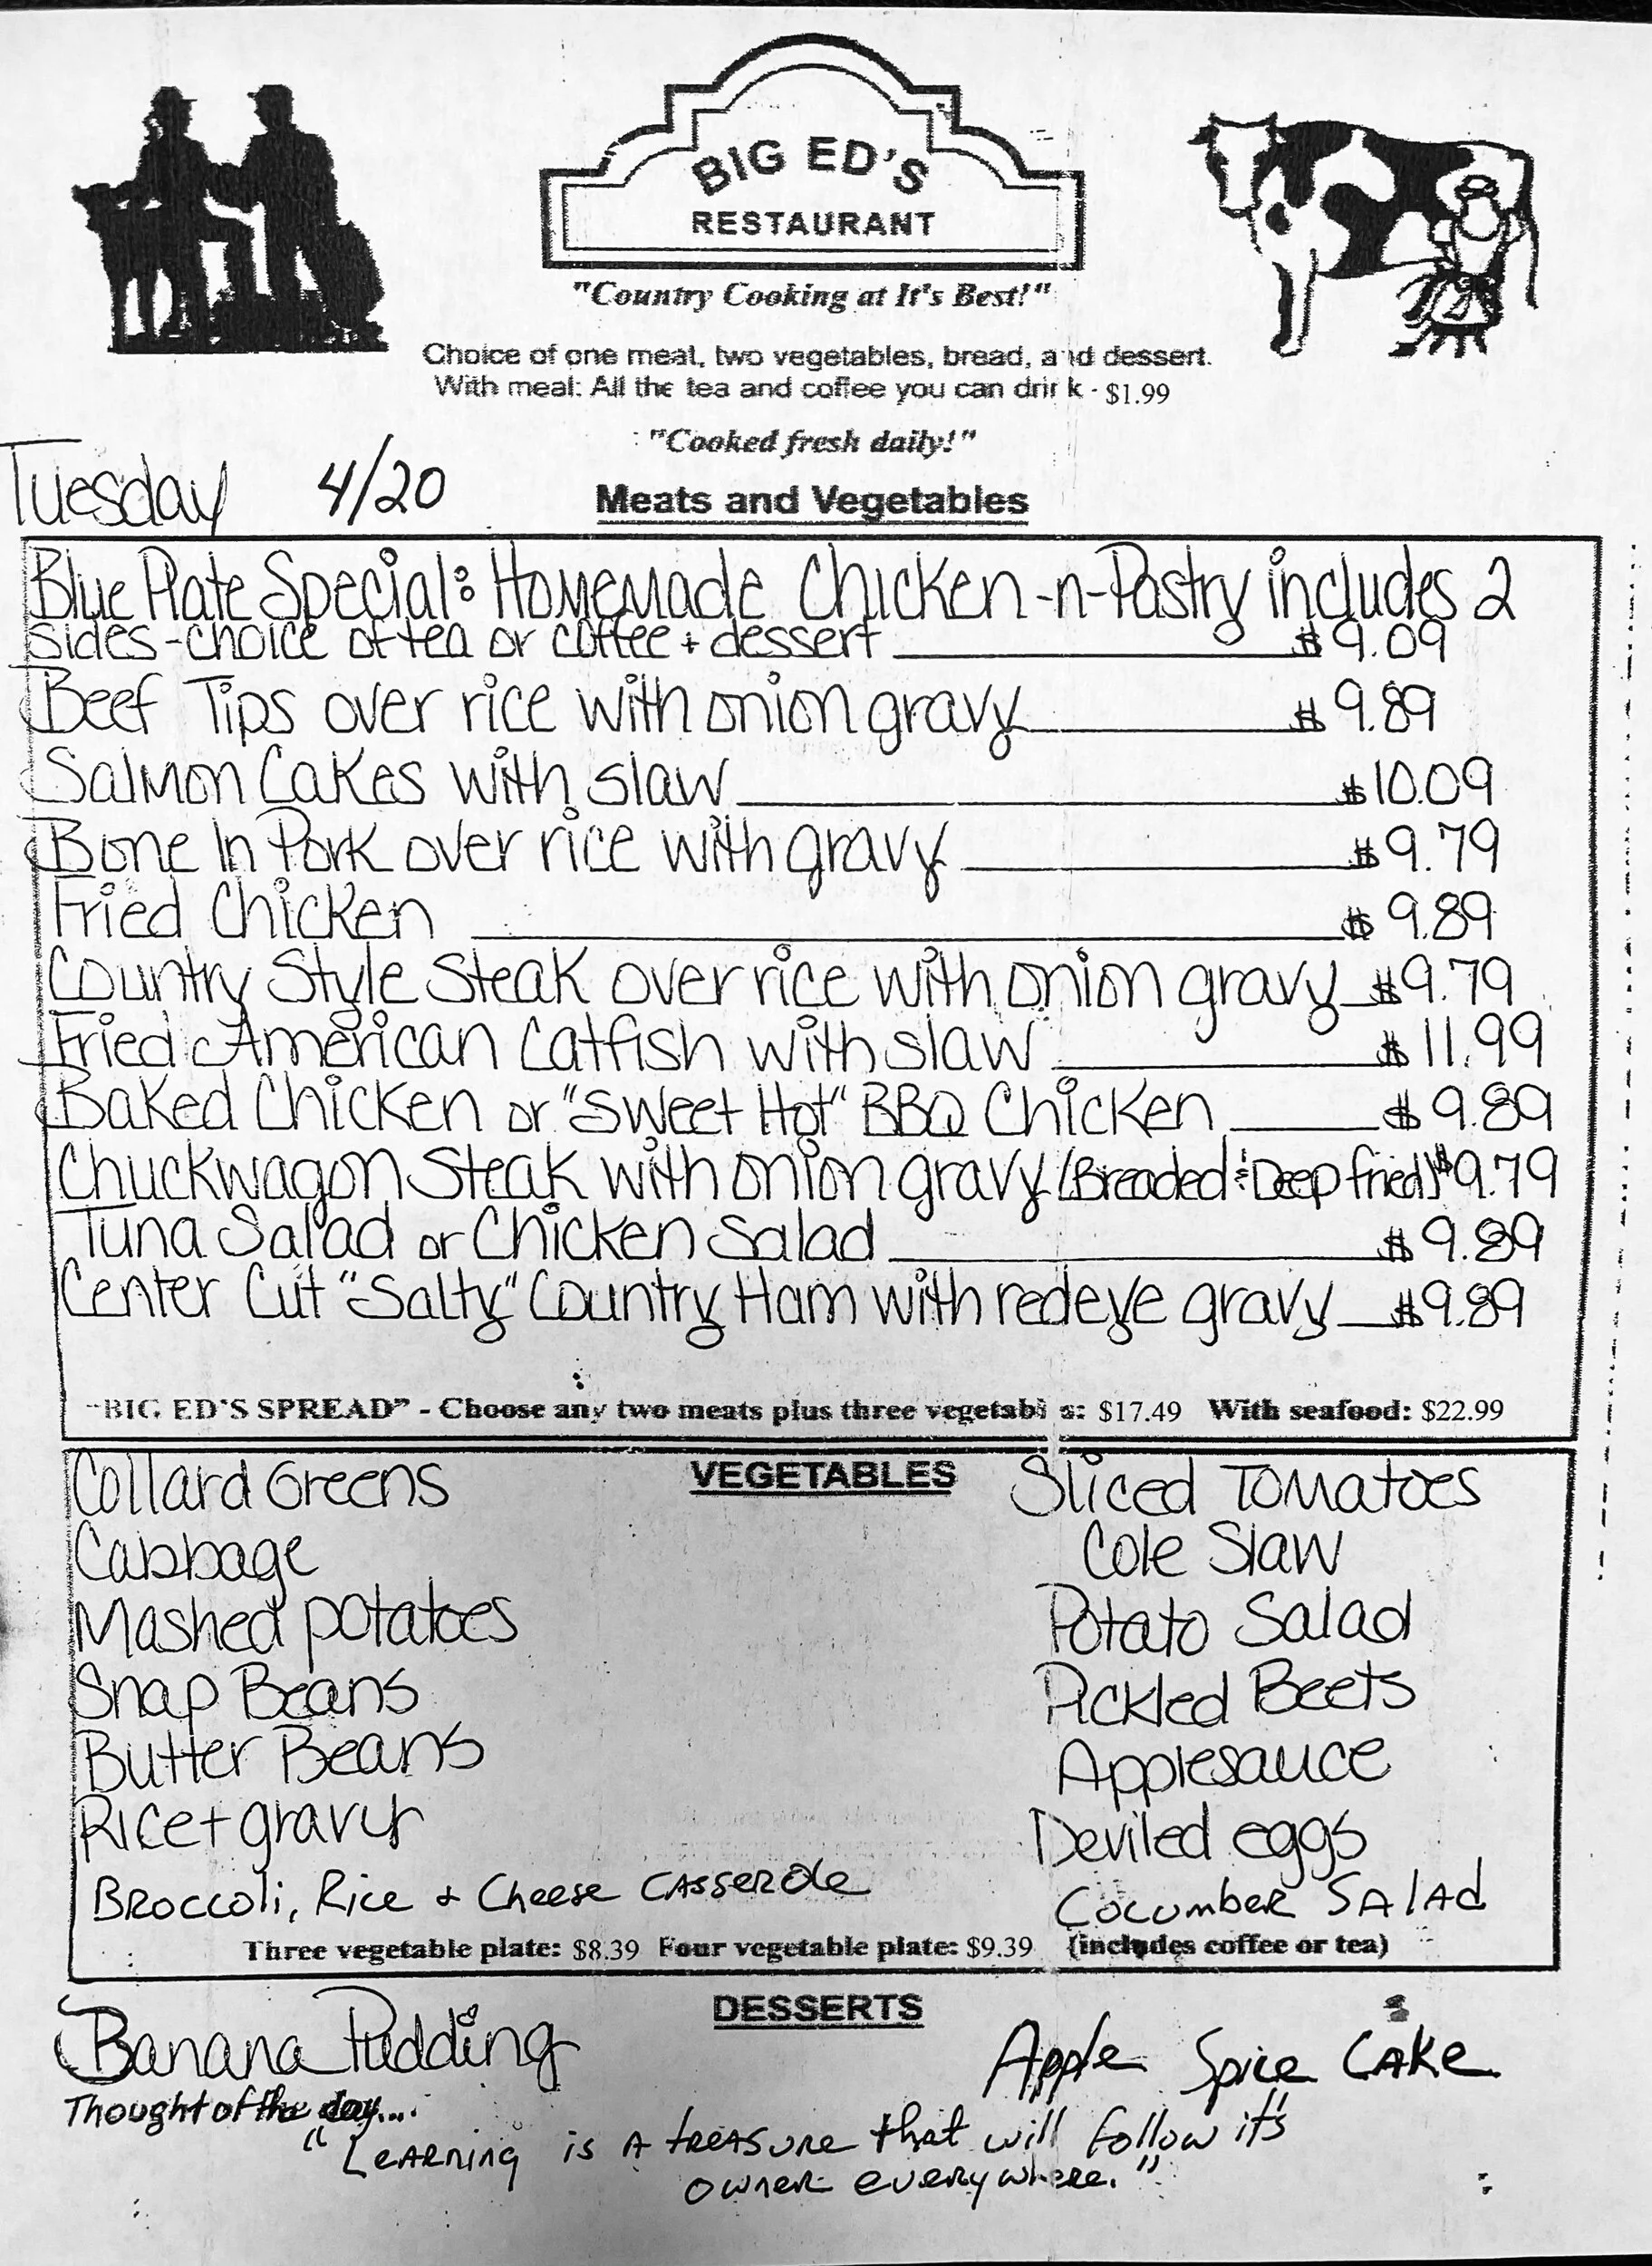 BIG ED'S
RESTAURANT
"Country Cooking at It's Best!"
Choice of one meat, two vegetables, bread, and dessert.
With meal: All the tea and coffee you can drink - $1.99
"Cooked fresh daily!"
Tuesday 4/20
Meats and Vegetables
Blue Plate Special: Homemade Chicken-n-Pastry includes 2
sides-choice of tea or coffee + dessert $9.09
Beef Tips over rice with onion gravy $9.89
Salmon Cakes with slaw $10.09
Bone In Pork over rice with gravy $9.79
Fried Chicken $9.89
Country Style Steak over rice with onion gravy $9.79
Fried American Catfish with slaw $11.99
Baked Chicken or "Sweet Hot" BBQ Chicken $9.89
Chuckwagon Steak with onion gravy (Breaded & Deep fried) $9.79
Tuna Salad or Chicken Salad $9.89
Center Cut "Salty" Country Ham with redeye gravy $9.89
"BIG ED'S SPREAD" - Choose any two meats plus three vegetables: $17.49 With seafood: $22.99
VEGETABLES
Collard Greens
Cabbage
Mashed potatoes
Snap Beans
Butter Beans
Rice + gravy
Broccoli, Rice + Cheese Casserole
Sliced Tomatoes
Cole Slaw
Potato Salad
Pickled Beets
Applesauce
Deviled eggs
Cocumber Salad
Three vegetable plate: $8.39 Four vegetable plate: $9.39 (includes coffee or tea)
DESSERTS
Banana Pudding Apple Spice Cake
Thought of the day...
"Learning is a treasure that will follow it's
owner everywhere."